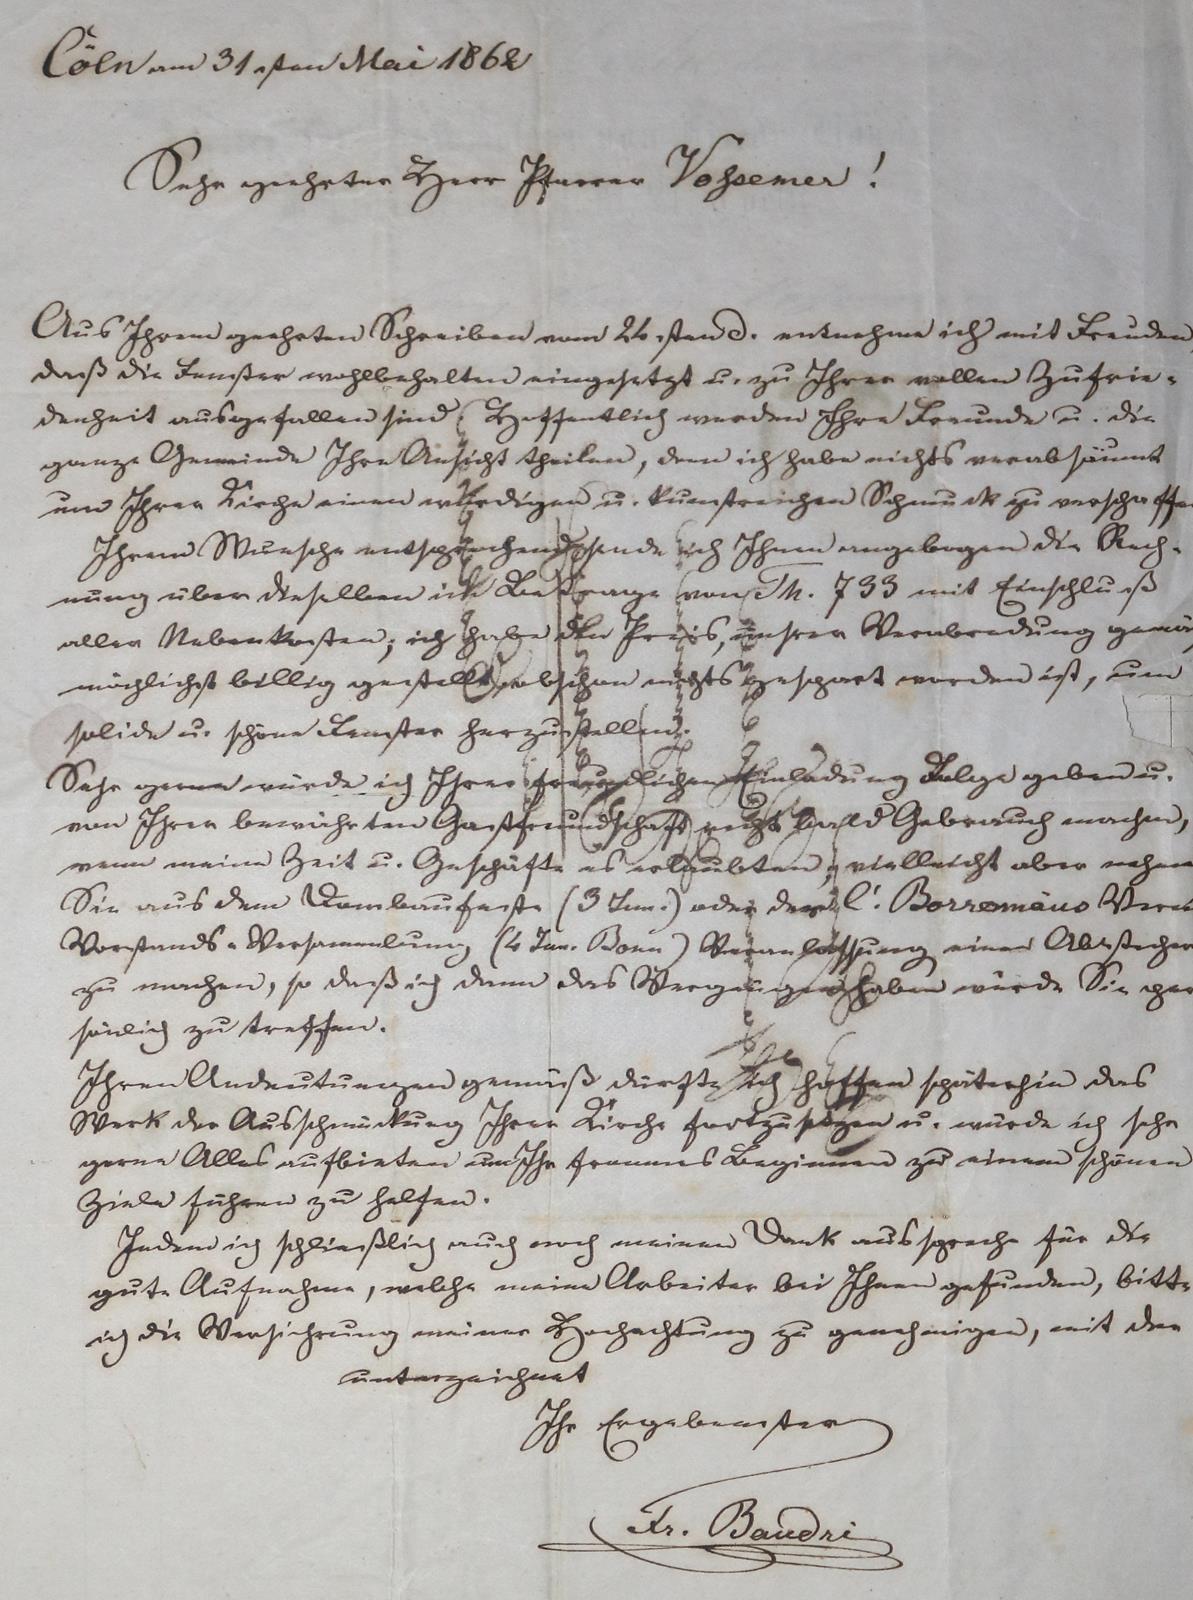 Cöln am 31sten Mai 1862
Sehr geehrter Herr Pfarrer Vohsemer!
Aus Ihrem geehrten Schreiben vom 26sten d. entnehme ich mit Freuden
daß die Fenster wohlbehalten eingesetzt u. zu Ihrer vollen Zufrie-
denheit ausgefallen sind. Hoffentlich werden Ihre Freunde u. die
ganze Gemeinde Ihre Ansicht theilen, denn ich habe nichts verabsäumt
um Ihrer Kirche einen würdigen u. kunstreichen Schmuck zu verschaffen
Ihrem Wunsche entsprechend sende ich Ihnen angebogen die Rech-
nung über dieselben im Betrage von Th. 733 mit Einschluß
aller Nebenkosten; ich habe den Preis, unsrer Verabredung gemäß
möglichst billig gestellt, obschon nichts gespart worden ist, um
solide u. schöne Fenster herzustellen.
Sehr gerne würde ich Ihrer freundlichen Einladung Folge geben u.
von Ihrer bewährten Gastfreundschaft recht bald Gebrauch machen,
wenn meine Zeit u. Geschäfte es erlaubten; vielleicht aber nehmen
Sie aus dem Dombaufeste (3 Jun.) oder der C. Borromäus Verein
Vorstands-Versammlung (4 Jun. Bonn) Veranlassung einen Abstecher
zu machen, so daß ich dann das Vergnügen haben würde Sie per
sönlich zu treffen.
Ihren Andeutungen gemäß dürfte ich hoffen späterhin das
Werk der Ausschmückung Ihrer Kirche fortzusetzen u. würde ich sehr
gerne Alles aufbieten um Ihr frommes Beginnen zu einem schönen
Ziele führen zu helfen.
Indem ich schließlich auch noch meinen Dank ausspreche für die
gute Aufnahme, welche meine Arbeiter bei Ihnen gefunden, bitte
ich die Versichrung meiner Hochachtung zu genehmigen, mit der
unterzeichnet
Ihr Ergebenster
Fr. Baudri